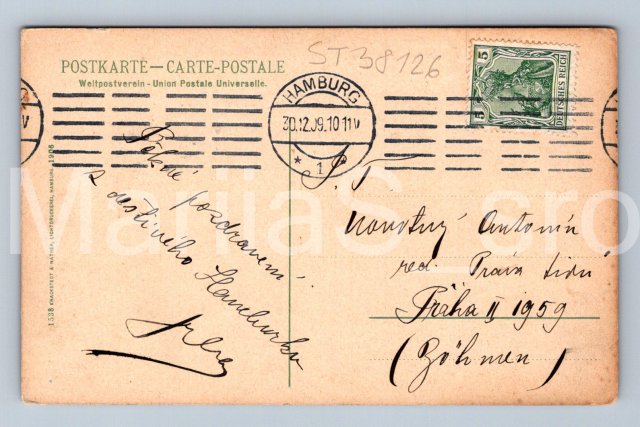 ST38126
POSTKARTE — CARTE-POSTALE
Weltpostverein - Union Postale Universelle.
HAMBURG
30.12.09.10-11V
* 1
5 5
DEUTSCHES REICH
1538 KNACKSTEDT & NÄTHER, LICHTDRUCKEREI, HAMBURG 1906
pozdravení
z deštivého Hamburku
P. T.
Novotný Antonín
red. Práva lidu
Praha II 1959
(Böhmen)